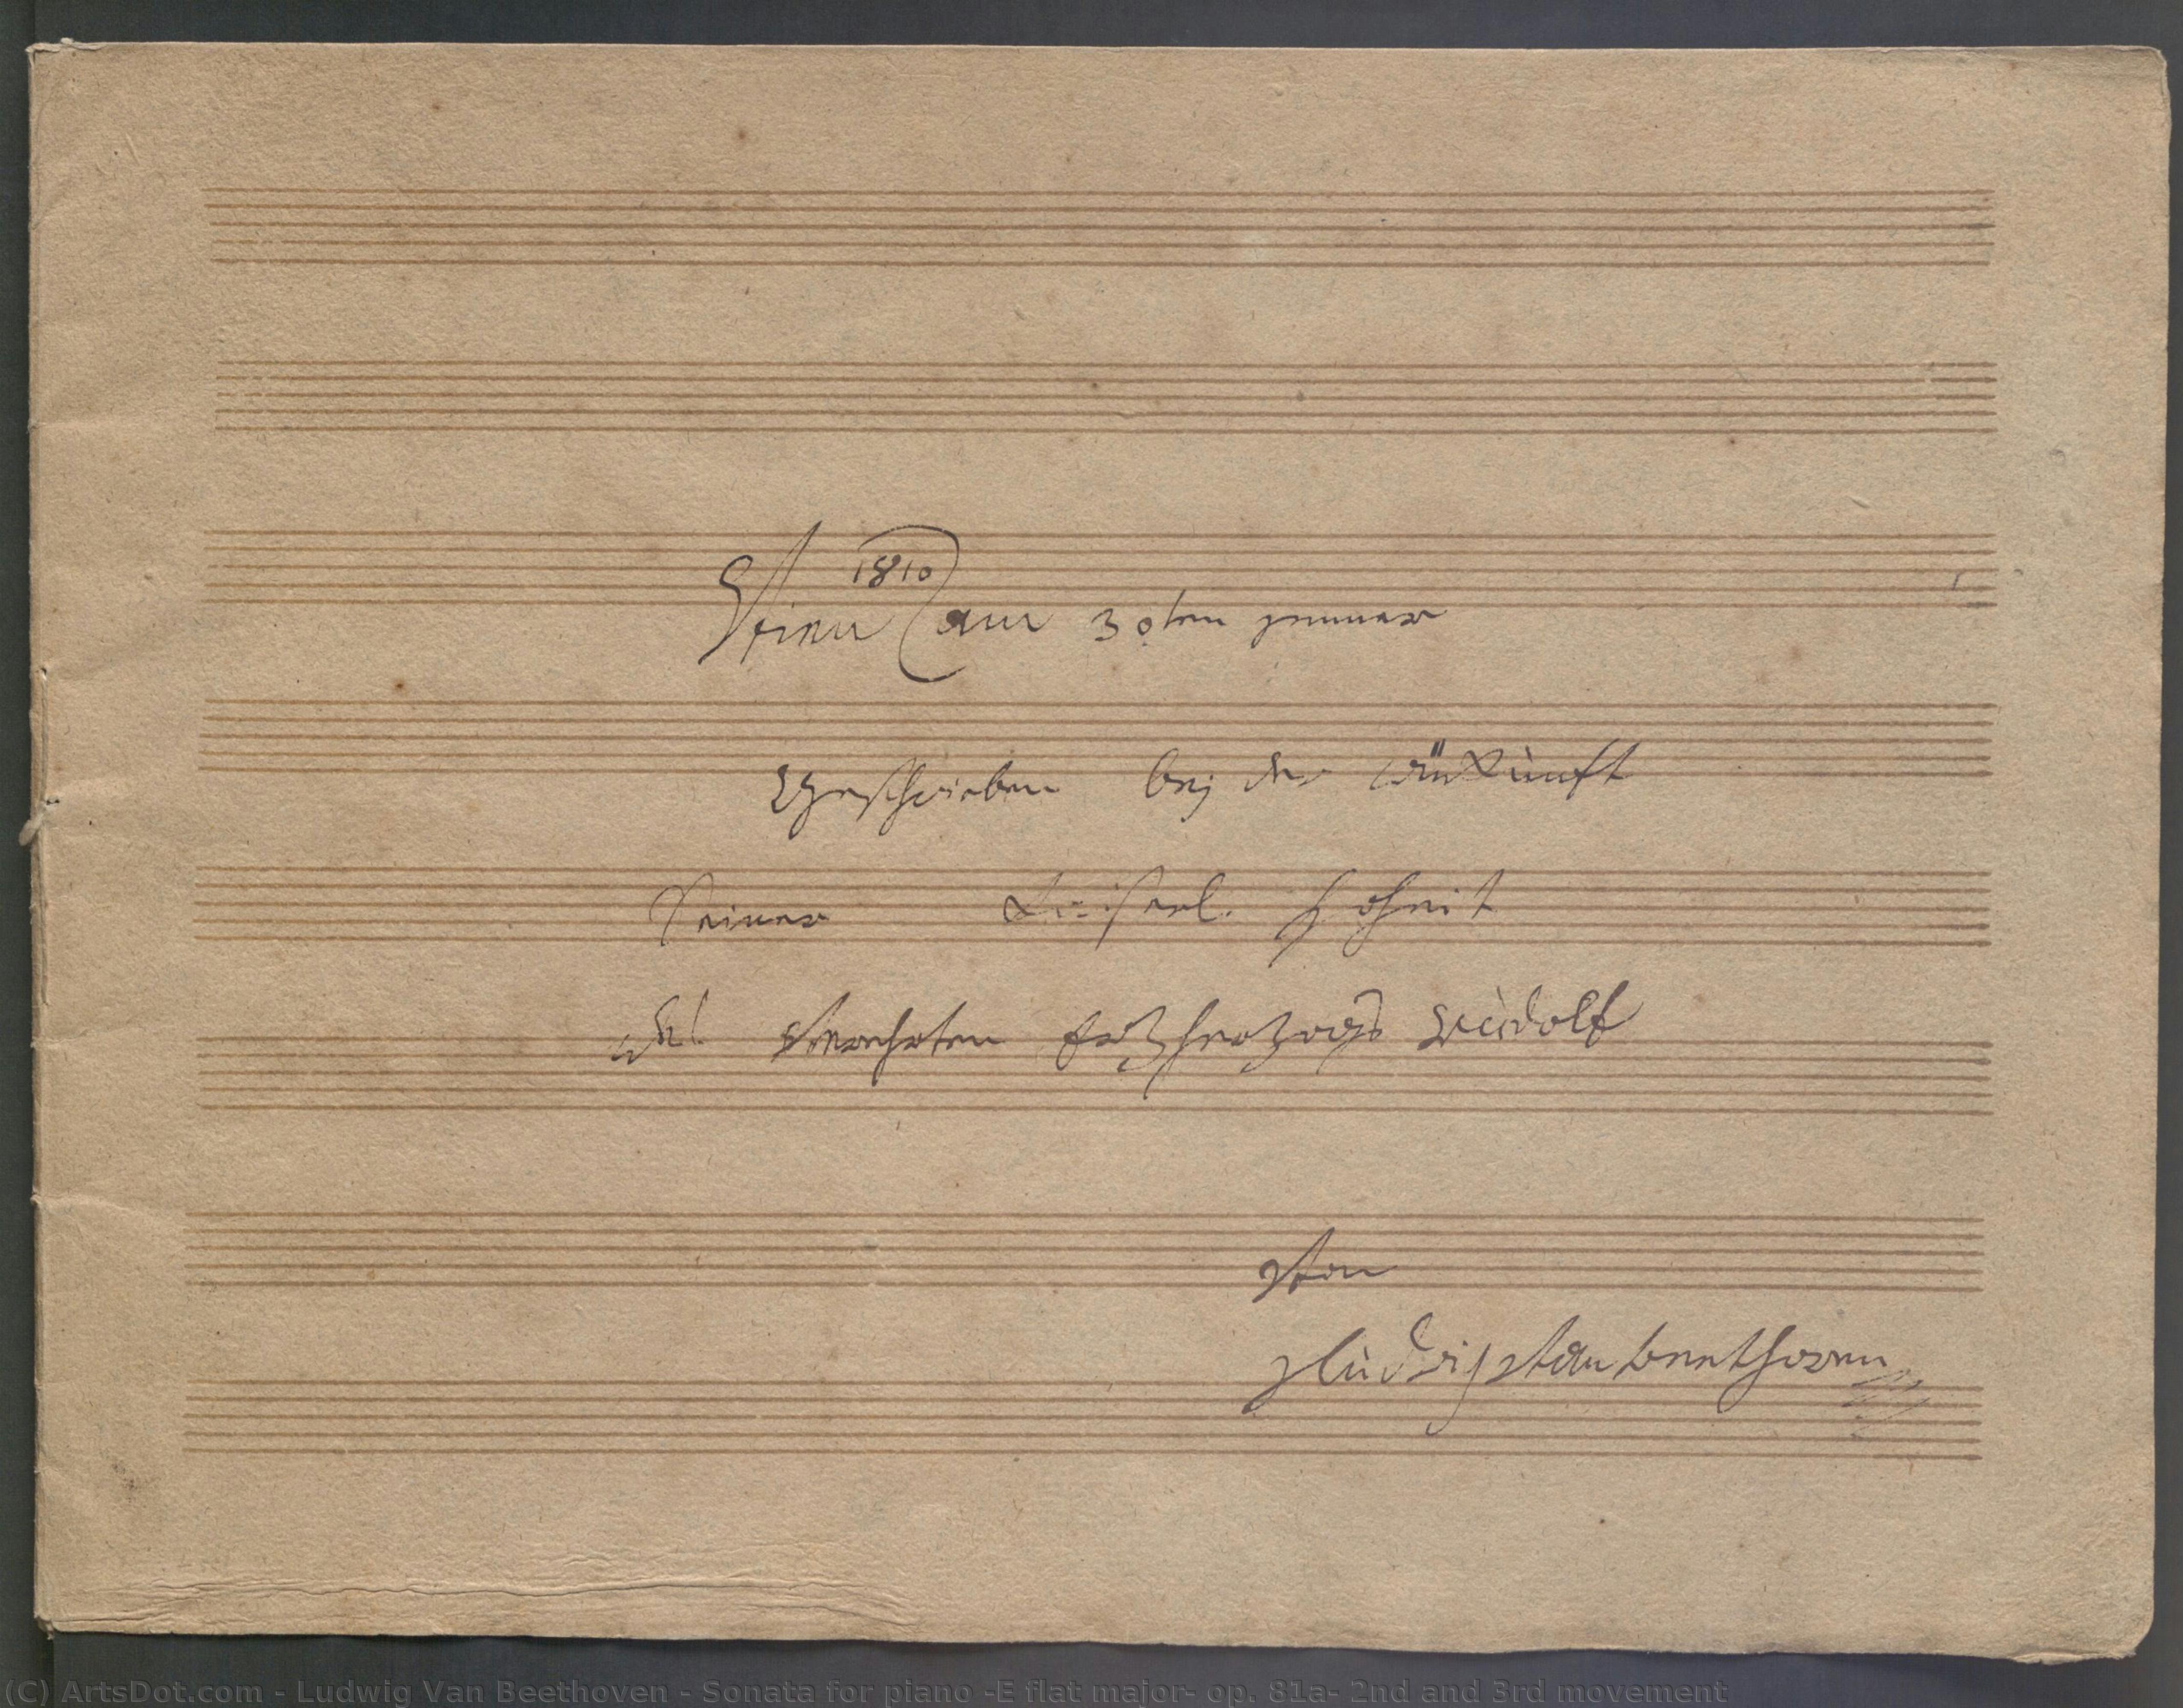 1810
Wien am 30ten januar
Geschrieben bej der Ankunft
Seiner Kaiserl. Hoheit
des Verehrten Erzherzogs Rudolf
Von
Ludwig van Beethoven
(C) ArtsDot.com - Ludwig Van Beethoven - Sonata for piano -E flat major- op. 81a- 2nd and 3rd movement